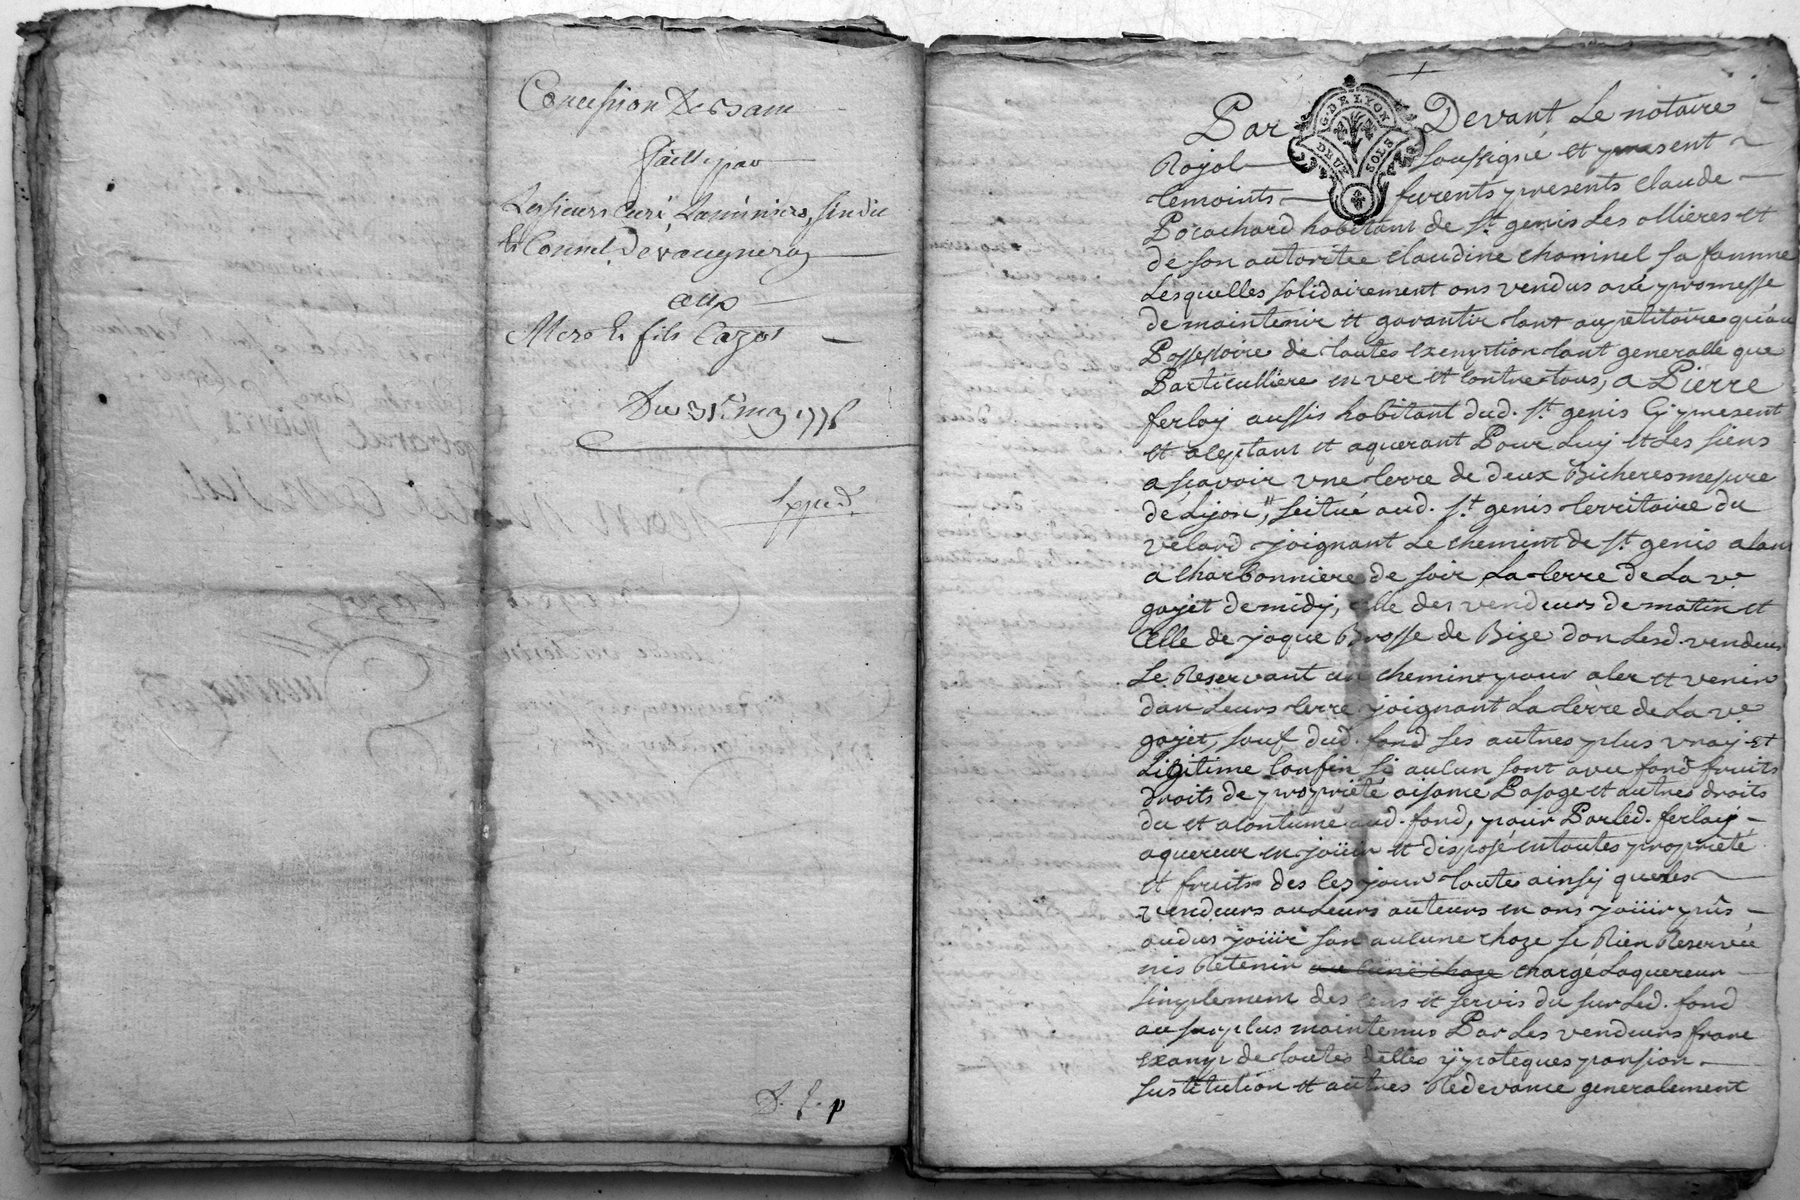 Concession de banc
faitte par
Les sieurs Curé Lamuniere, sindic
et Consuls de vaugneray
aux
Mere et fils Cazot
Du 31e may 1776
Expéd.
S. J. p
Par Devant Le notaire
G. DE LYON
DEUX SOLS
Royal soussigné et present
temoints furents presents claude
Pocachard habitant de st. genis Les ollières et
de son autoritée claudine chaninel sa famme
Lesquelles solidairement ons vendus avé promesse
de maintenir et garantir tant aupetitoire qu'au
Possessoire de toutes exemption tant generalle que
Particulliere en ver et contre tous, a Pierre
ferlay aussis habitant dud. st. genis Cy present
et aceptant et aquerant Pour Luy et Les siens
a scavoir vne terre de deux Bicheres mesure
de Lyon, seitué aud. st. genis territoire du
velard joignant Le chemint de st. genis alant
a charbonniere de soir La terre de La ve
gayet de midy, celle des vendeurs de matin et
Celle de jaque Brosse de Bize don Lesd. vendeurs
Se Reservant un chemint pour aler et venir
dan Leurs terre joignant La tèrre de La ve
gayet, sauf dud. fond ses autres plus vray et
Ligitime Confin si aucun sont avec fond fruits
droits de propriété aisance Pasage et autres droits
du et acontumé aud. fond, pour Par led. ferlay
aquereur en joüir et disposé en toutes propriété
et fruits des ces jour toutes ainsy que les
vendeurs ou Leurs auteurs en ons joüir pûs
ou dus joüir san aucune choze se Rien Reservée
nis Retenir aucune choze chargé Laquereur
simplement des cens et servis du sur Led. fond
au surplus maintenus Par Les vendeurs franc
exanp de toutes dettes ypoteques pansion
sustitution et autres Redevance generalement